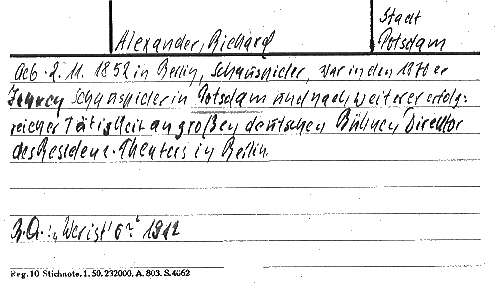 Alexander, Richard
Stadt
Potsdam
Geb. 2. 11. 1852 in Berlin, Schauspieler, war in den 1870er
Jahren Schauspieler in Potsdam und nach weiterer erfolg-
reicher Tätigkeit an großen deutschen Bühnen Direktor
des Residenz-Theaters in Berlin.
"Wer ist's?" 1912
Reg. 10 Stichnote. 1. 50. 232000. A. 803. S. 4062